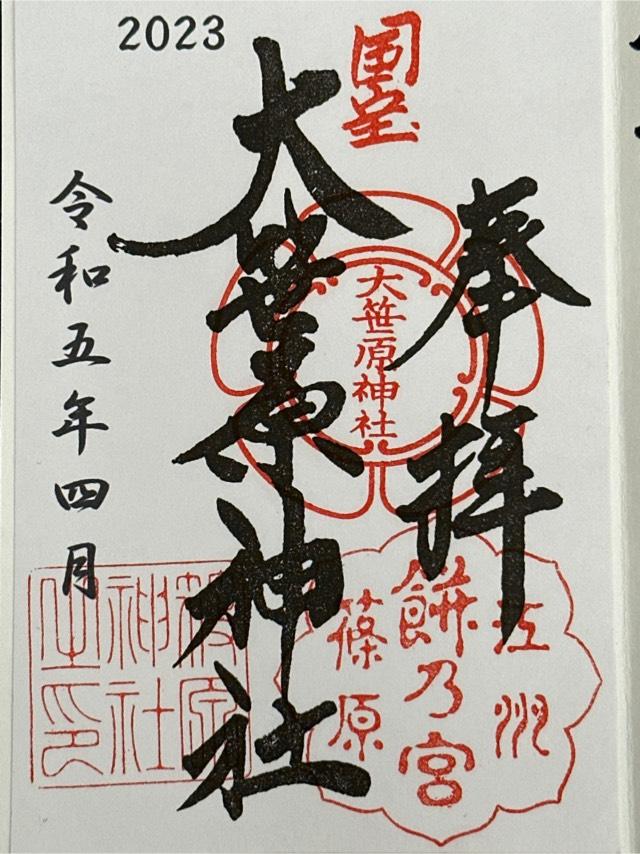 2023
国宝
奉拝
大笹原神社
大笹原神社
江州
餅乃宮
篠原
神社
令和五年四月